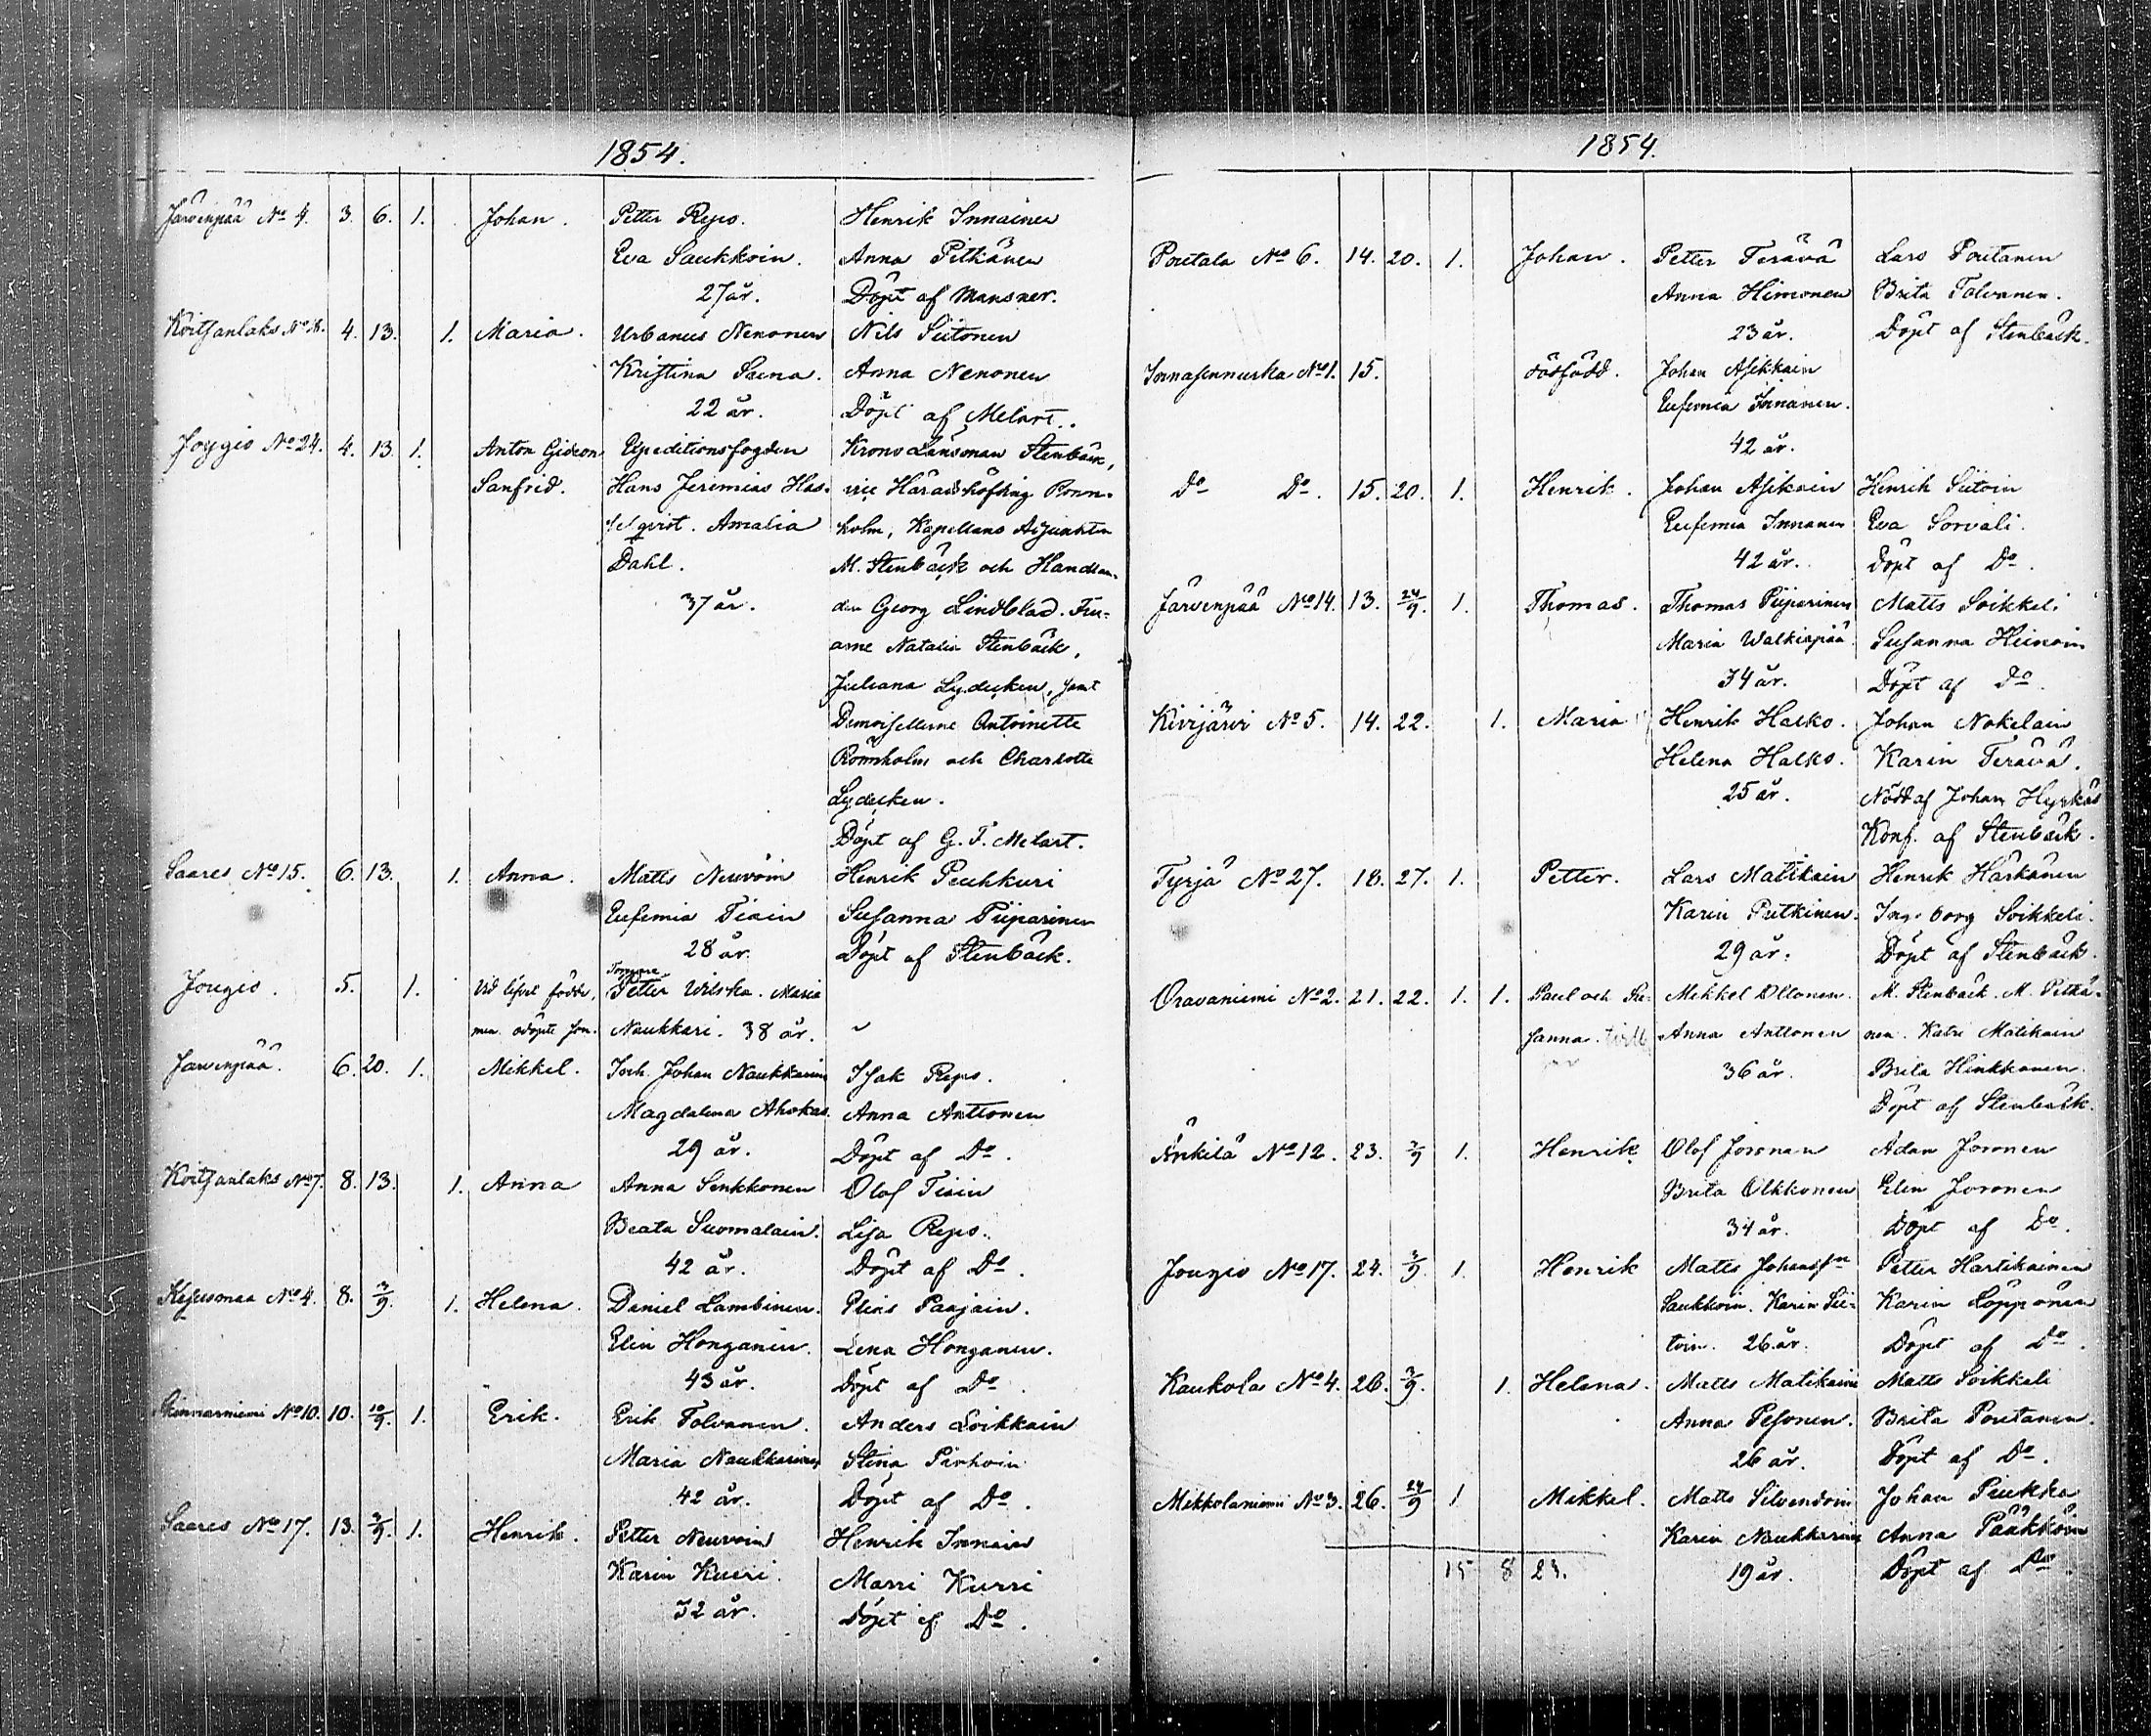 1854.
Järvenpää No 4. 3. 6. 1. Johan. Petter Repo. Henrik Innainen
Eva Saukkoin. Anna Pitkänen
27 år. Döpt af Mansner.
Koitsanlaks No 4. 13. 1. Maria. Urbanus Nenonen Nils Siitonen
Kristina Saina. Anna Nenonen
22 år. Döpt af Melart.
Jougio No 24. 4. 13. 1. Anton Gideon Expeditionsfogden Krono Länsman Stenbäck,
Sanfrid. Hans Jeremias Has- vice Häradshöfding Rönn-
selqvist. Amalia holm, Kapellans Adjunkten
Dahl. M. Stenbäck och Handlan-
37 år. den Georg Lindblad. Fru-
arne Natalia Stenbäck,
Juliana Lydecken, samt
Demoisellerne Antoinette
Rönnholm och Charlotte
Lydecken.
Döpt af G. F. Melart.
Saares No 15. 6. 13. 1. Anna. Matts Neuvoin Henrik Peuhkuri
Eufemia Tiain Susanna Piiparinen
28 år. Döpt af Stenbäck.
Jougio. 5. 1. Vid lifvet födde, Petter Wilska. Maria
men odöpte son. Naukkari. 38 år.
Järvenpää. 6. 20. 1. Mikkel. Torp. Johan Naukkarin Isak Repo.
Magdalena Ahokas Anna Anttonen
29 år. Döpt af Do.
Koitsanlaks No 7. 8. 13. 1. Anna Anna Senkkonen Olof Tiain
Beata Suomalain. Lisa Repo.
42 år. Döpt af Do.
Kesusmaa No 4. 8. 3/9. 1. Helena. Daniel Lambinen. Elias Paajain.
Elin Honganin. Lena Honganen.
43 år. Döpt af Do
Kinnarniemi No 10. 10. 10/9. 1. Erik. Erik Tolvanen. Anders Loikkain
Maria Naukkarinen Stina Parhoin
42 år. Döpt af Do.
Saares No 17. 13. 3/9. 1. Henrik. Petter Neuvoin Henrik Innain
Karin Kurri. Marri Kurri
32 år. Döpt af Do.
1854.
Poutala No 6. 14. 20. 1. Johan. Petter Terävä Lars Poutanen
Anna Himonen Brita Tolvanen.
23 år. Döpt af Stenbäck.
Innasennurka No 1. 15. dödfödd. Johan Asikkain
Eufemia Innanen.
42 år.
Do Do. 15. 20. 1. Henrik. Johan Asikain Henrik Siitoin
Eufemia Innanen Eva Sorvali.
42 år. Döpt af Do.
Järvenpää No 14. 13. 24/9. 1. Thomas. Thomas Piiparinen Matts Soikkeli
Maria Walkiapää. Susanna Heinoin
34 år. Döpt af Do.
Kivijärvi No 5. 14. 22. 1. Maria Henrik Halko. Johan Nokelain
Helena Halko. Karin Terävä.
25 år. Nödd af Johan Hyrkäs
Konf. af Stenbäck.
Tyrjä No 27. 18. 27. 1. Petter. Lars Matikain Henrik Härkönen
Karin Putkinen. Ingeborg Soikkeli.
29 år. Döpt af Stenbäck.
Oravaniemi No 2. 21. 22. 1. 1. Paul och Su- Mikkel Ollonen. M. Stenbäck. M. Pitkä-
sanna. Anna Anttonen nen. Katri Matikain
36 år. Brita Hinkkanen.
Döpt af Stenbäck.
Änkilä No 12. 23. 3/9 1. Henrik Olof Joronen Adam Joronen
Brita Olkkonen Elin Joronen
34 år. Döpt af Do.
Jougio No 17. 24. 3/9. 1. Henrik Matts Johanss:n Petter Hartikainen
Saukkoin. Karin Sii- Karin Lopponen
toin. 26 år. Döpt af Do.
Kaukola No 4. 26. 3/9. 1. Helena. Matts Matikain Matts Soikkeli
Anna Pesonen. Brita Poutanen.
26 år. Döpt af Do.
Mikkolaniemi No 3. 26. 24/9 1 Mikkel. Matts Silvendoin Johan Piukka
Karin Naukkarin Anna Pääkköin
15 8 23. 19 år. Döpt af Do.